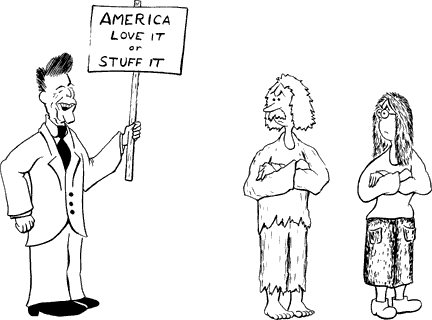 AMERICA
LOVE IT
or
STUFF IT